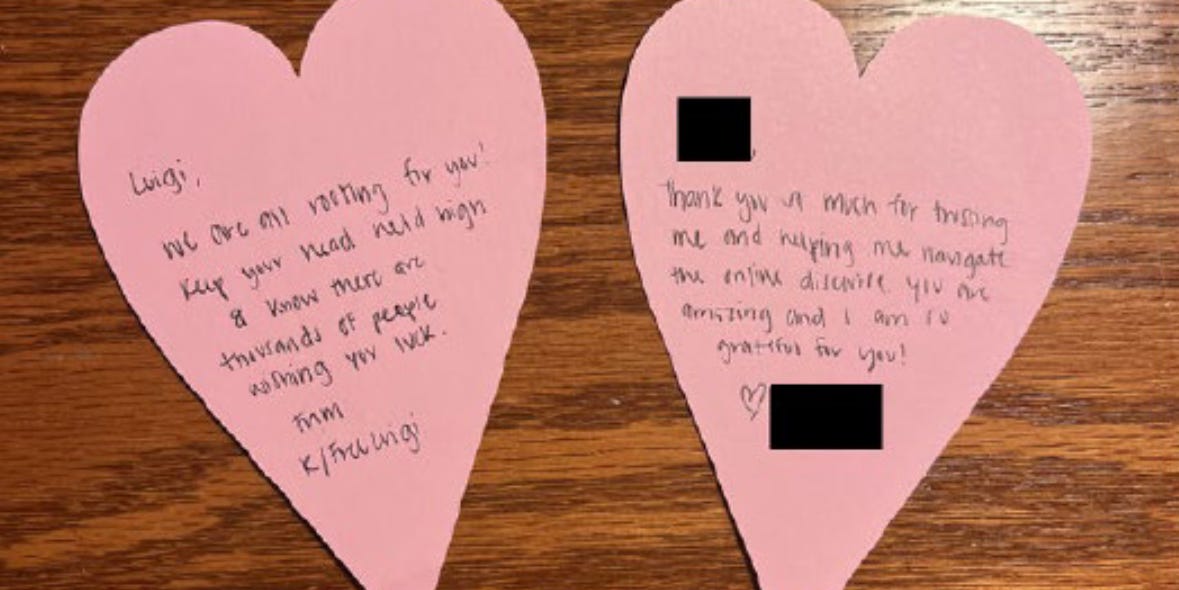 Luigi,
We are all rooting for you!
Keep your head held high
& know there are
thousands of people
wishing you luck.
From
r/FreeLuigi
,
Thank you so much for trusting
me and helping me navigate
the online discourse. You are
amazing and I am so
grateful for you!
♡